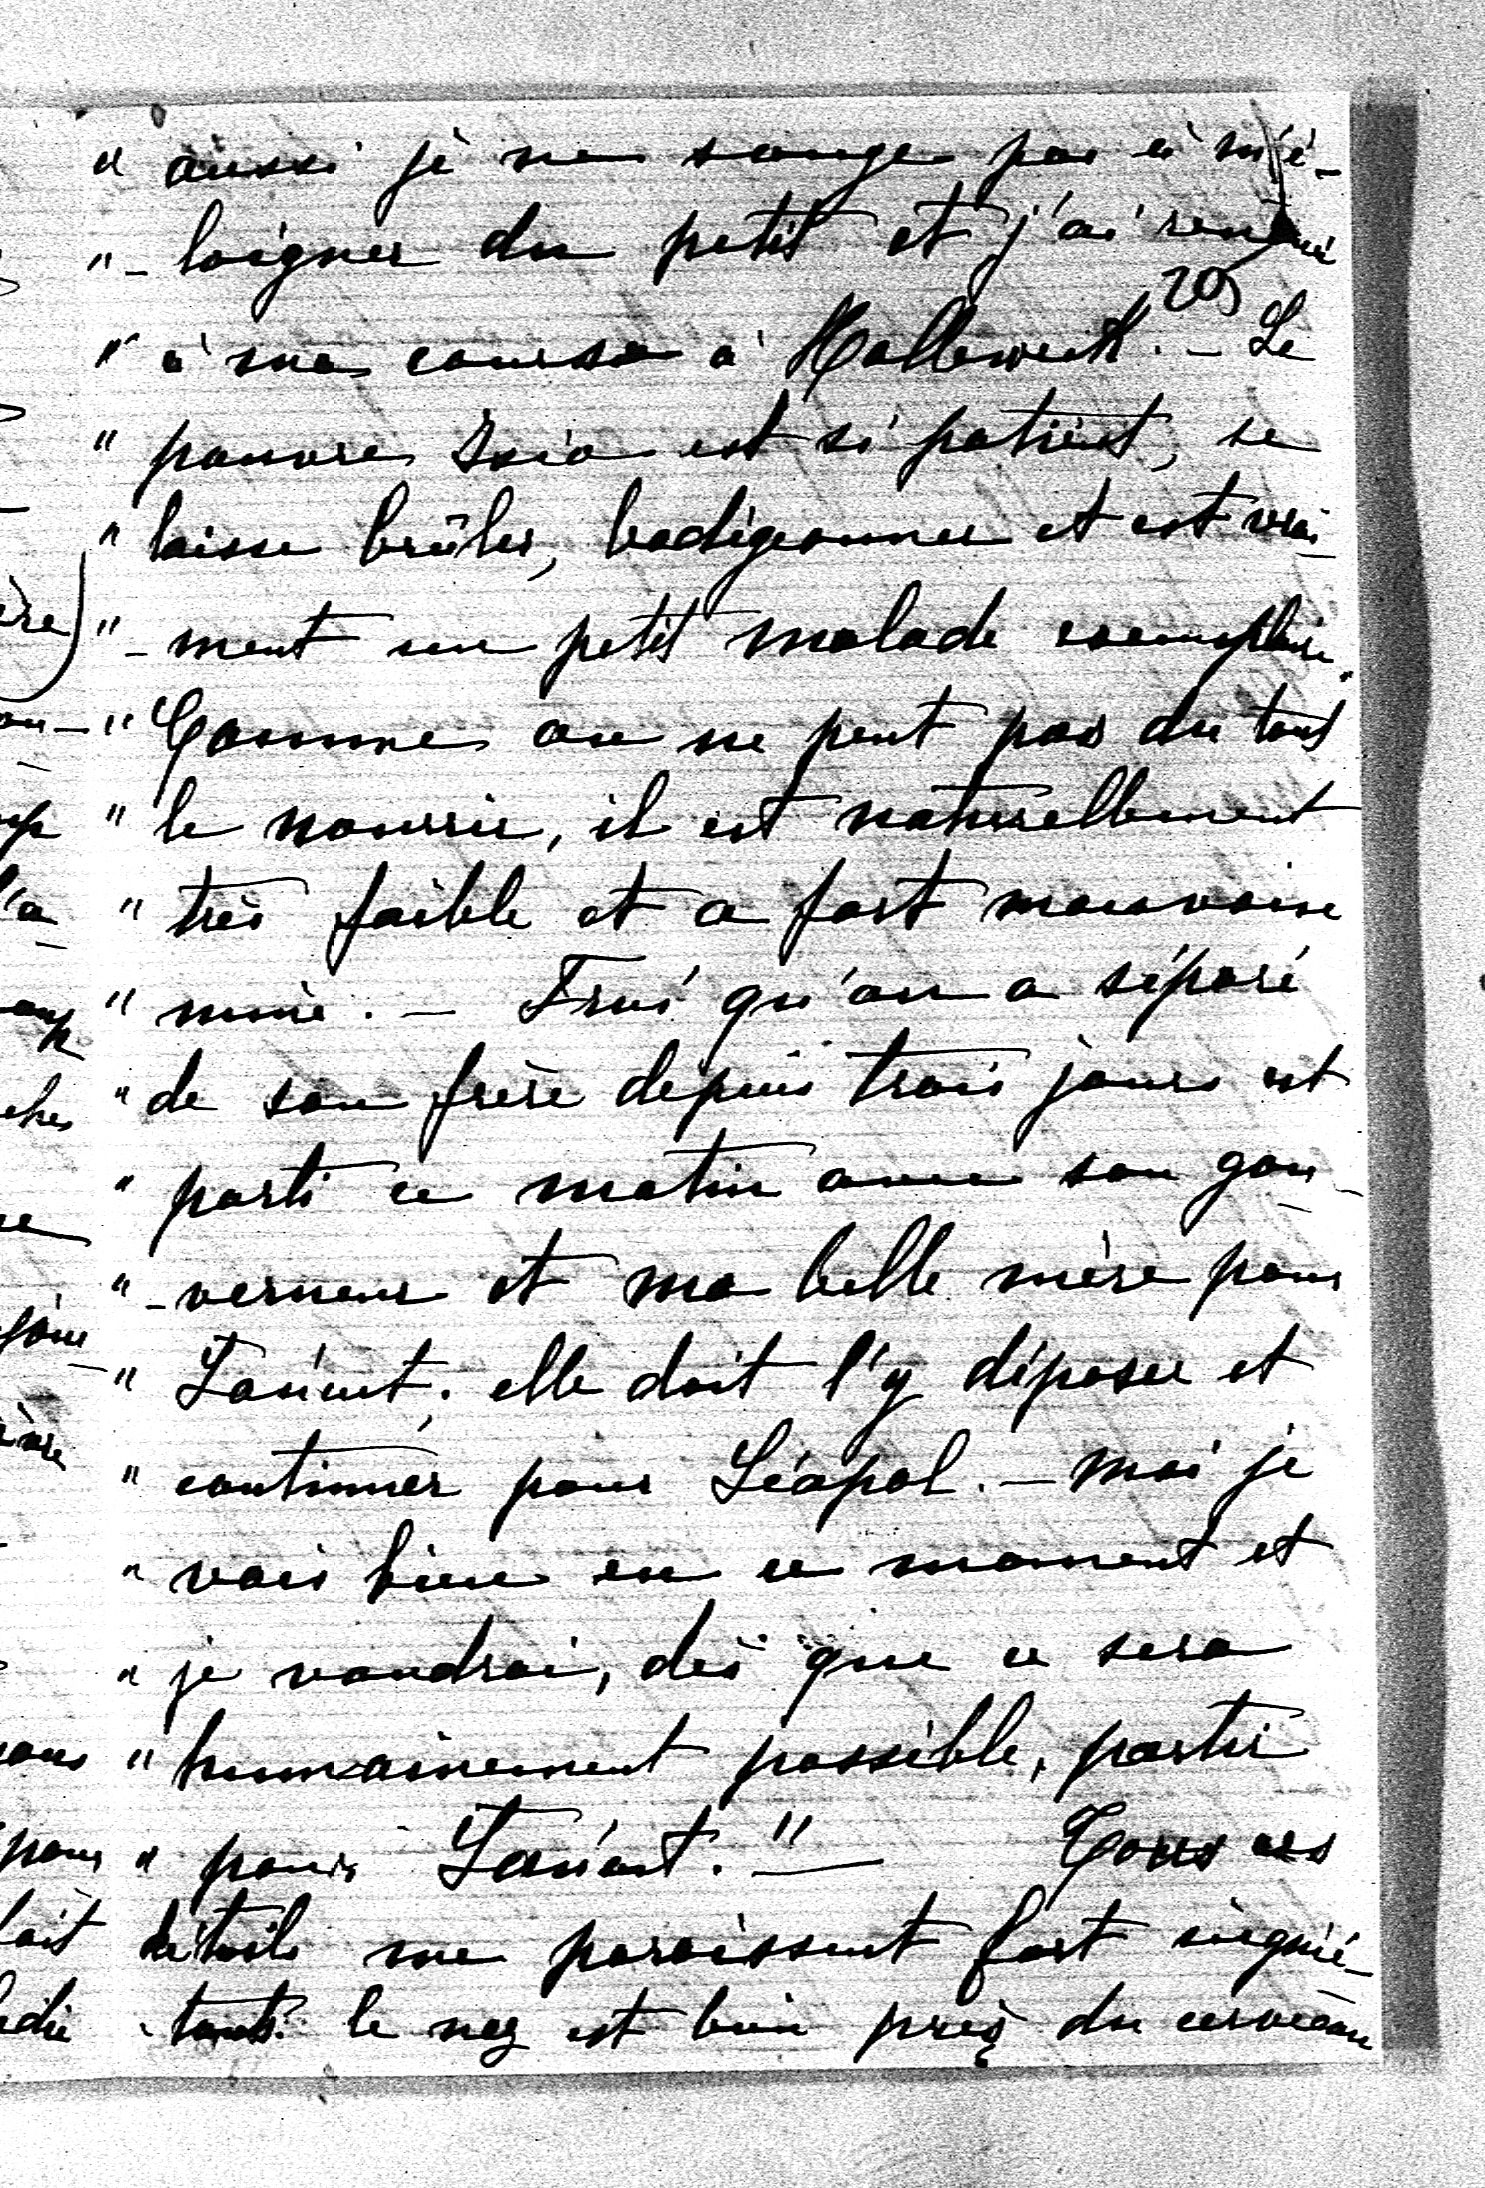 " aussi je ne songe pas à m'é-
"-loigner du petit et j'ai renoncé
205
" à ma course à Hallweil. – Le
" pauvre Toio est si patient, se
" laisse brûler, badigeonner et est vrai-
"-ment un petit malade exemplaire.
" Comme on ne peut pas du tout
" le nourrir, il est naturellement
" très faible et a fort mauvaise
" mine. – Frui qu'on a séparé
" de son frère depuis trois jours est
" parti ce matin avec son gou-
"-verneur et ma belle mère pour
" ; elle doit l'y déposer et
" continuer pour Léopol. – Moi je
" vais bien en ce moment et
" je voudrai, dès que ce sera
" humainement possible, partir
" pour ." – Tous ces
détails me paraissent fort inquié-
-tants. le nez est bien près du cerveau